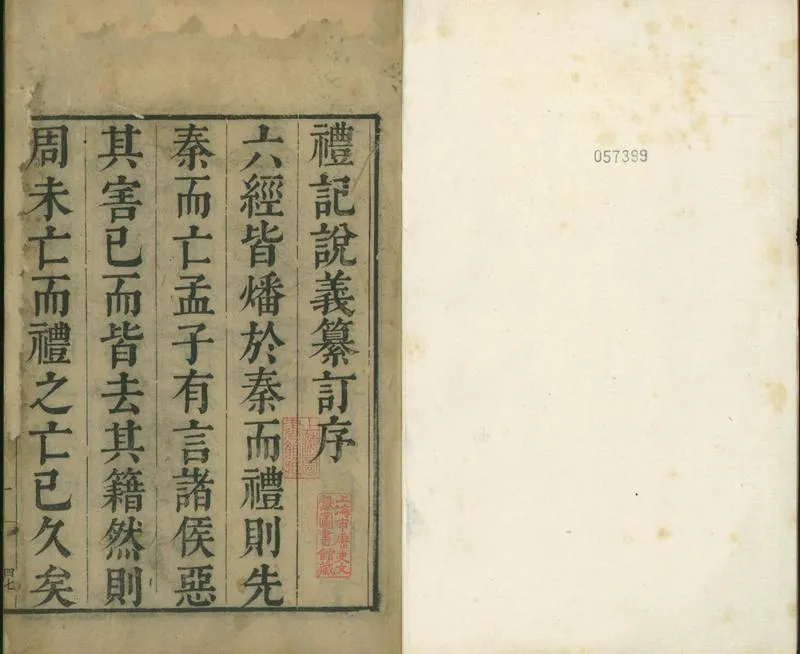 禮記說義纂訂序
六經皆燔於秦而禮則先
秦而亡孟子有言諸侯惡
其害已而皆去其籍然則
周未亡而禮之亡已久矣
上海市歷史文
獻圖書館藏
四七
057399